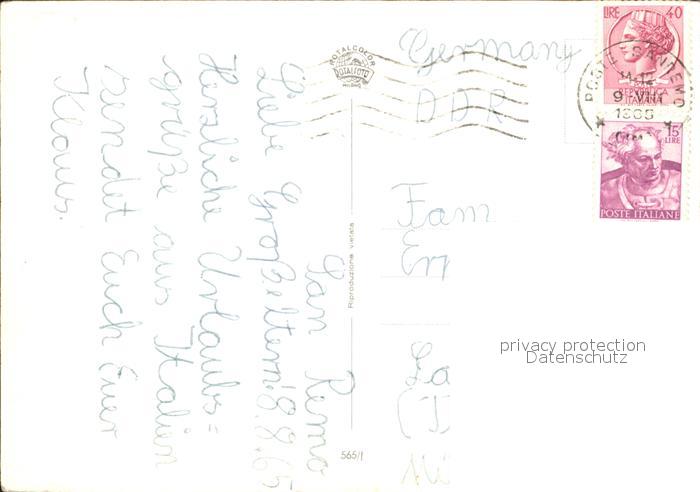 San Remo
8.8.65
Liebe Großeltern!
Herzliche Urlaubs=
grüße aus Italien
sendet Euch Euer
Klaus.
ROTALCOLOR
ROTALFOTO
MILANO
Riproduzione vietata
565/1
Germany
DDR
Fam
LIRE 40
REPUBBLICA
ITALIANA
POSTE SANREMO
9·VIII
15
LIRE
POSTE ITALIANE
privacy protection
Datenschutz